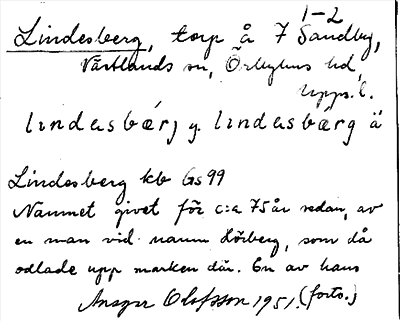 1-2
Lindesberg, torp å 7 Sandby,
Vårtlands sn, Örbyhus hd,
Upps. l.
lındäsbärj y. lındäsbärg ä
Lindesberg kb Gs 99
Namnet givet för c:a 75 år sedan, av
en man vid namn Lörberg, som då
odlade upp marken där. En av hans
Ansgar Olofsson 1951. (forts.)